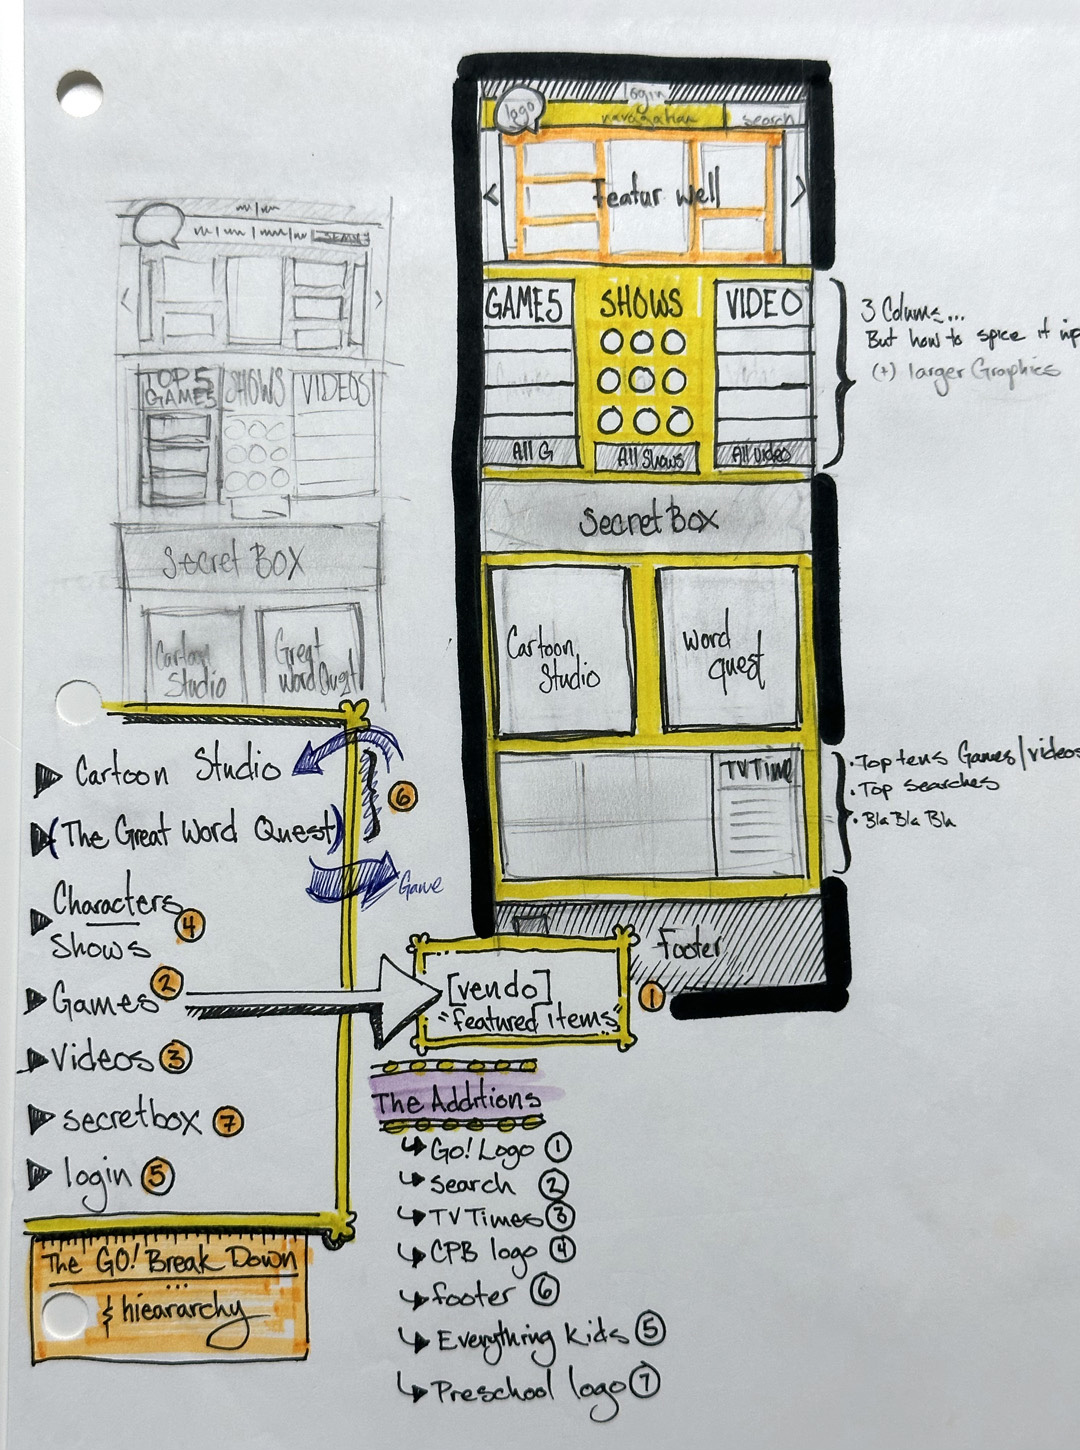 login
logo
navagation
search
Featur well
GAMES
SHOWS
VIDEO
All G
All Shows
All video
3 Colums...
But how to spice it up
(+) larger Graphics
Secret Box
Cartoon
Studio
Word
quest
TV Time
• Top tens Games/videos
• Top searches
• Bla Bla Bla
Footer
TOP 5
GAMES
SHOWS
VIDEOS
Secret BOX
Cartoon
Studio
Great
Word Quest
Cartoon Studio
(The Great Word Quest)
6
Game
Characters
Shows
4
Games 2
Videos 3
secretbox 7
login 5
[vendo]
"featured items"
1
The GO! Break Down
...
& hieararchy
The Additions
Go! Logo 1
search 2
TV Times 3
CPB logo 4
footer 6
Everything kids 5
Preschool logo 7